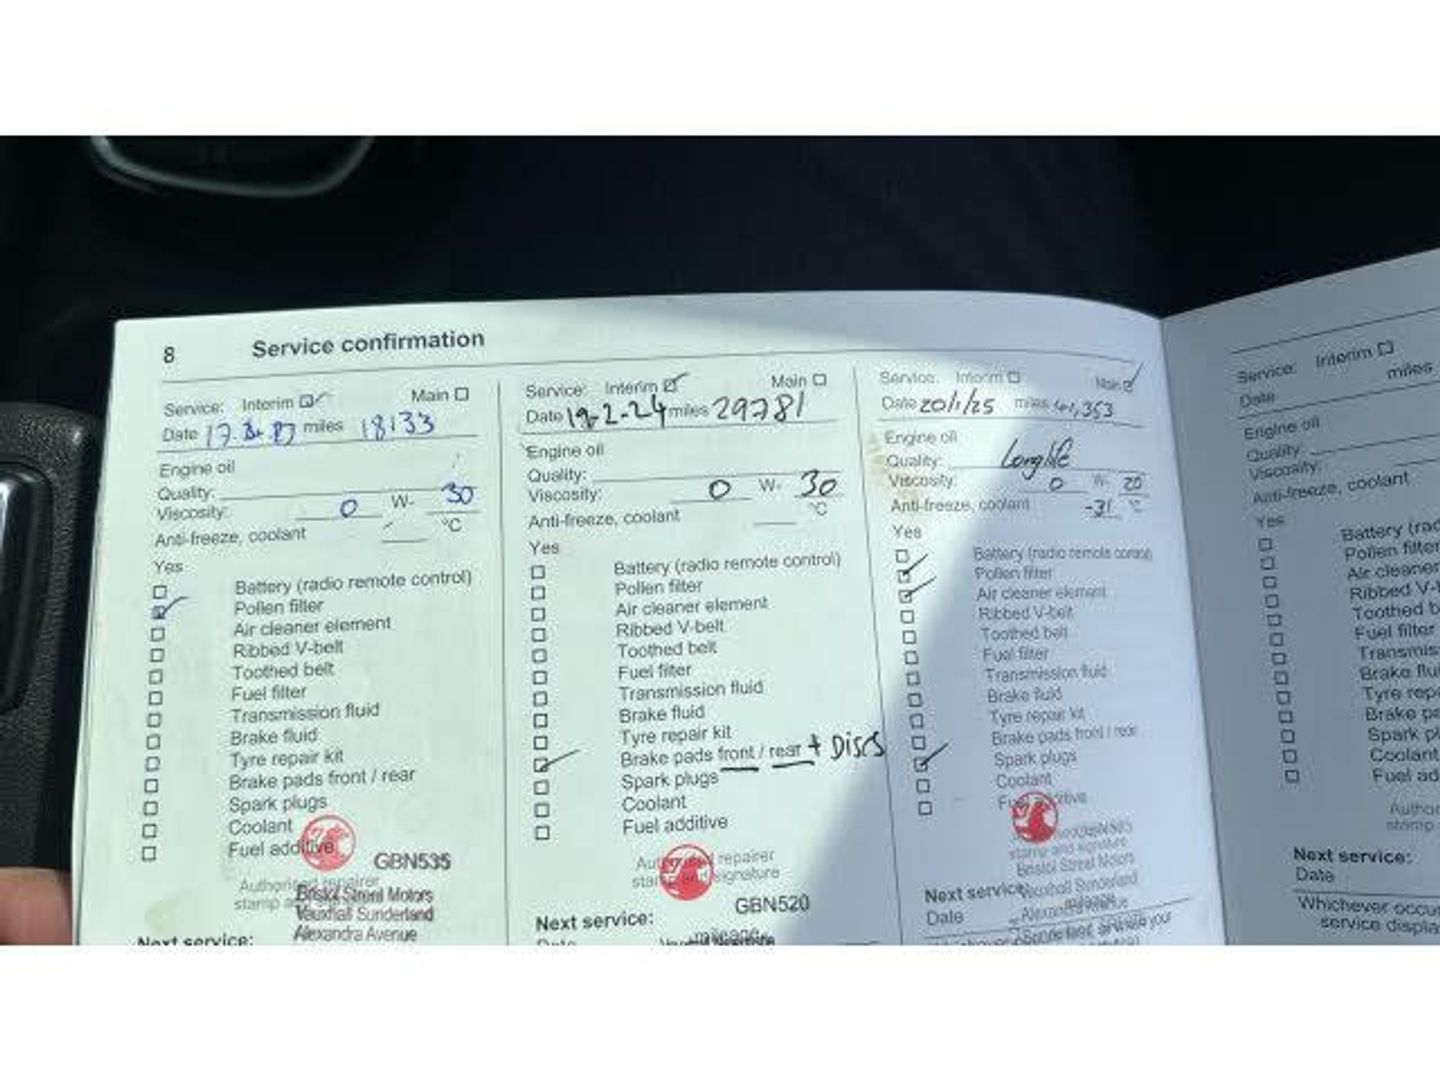 8 Service confirmation
Service: Interim Main
Date miles 18133
Engine oil
Quality:
Viscosity: 0 W- 30
Anti-freeze, coolant °C
Yes
Battery (radio remote control)
Pollen filter
Air cleaner element
Ribbed V-belt
Toothed belt
Fuel filter
Transmission fluid
Brake fluid
Tyre repair kit
Brake pads front / rear
Spark plugs
Coolant
Fuel additive
GBN535
Authorised repairer
stamp
Bristol Street Motors
Vauxhall Sunderland
Alexandra Avenue
Next service:
Service: Interim Main
Date 19-2-24 miles 29781
Engine oil
Quality:
Viscosity: 0 W- 30
Anti-freeze, coolant °C
Yes
Battery (radio remote control)
Pollen filter
Air cleaner element
Ribbed V-belt
Toothed belt
Fuel filter
Transmission fluid
Brake fluid
Tyre repair kit
Brake pads front / rear + DISCS
Spark plugs
Coolant
Fuel additive
Authorised repairer
stamp and signature
GBN520
Next service:
mileage
Date
Service: Interim Main
Date 20/1/25 miles 41,353
Engine oil
Quality: Longlife
Viscosity: 0 W- 20
Anti-freeze, coolant -31 °C
Yes
Battery (radio remote control)
Pollen filter
Air cleaner element
Ribbed V-belt
Toothed belt
Fuel filter
Transmission fluid
Brake fluid
Tyre repair kit
Brake pads front / rear
Spark plugs
Coolant
Fuel additive
stamp and signature
Bristol Street Motors
Next service: Vauxhall Sunderland
Date
Service: Interim
miles
Date
Engine oil
Quality:
Viscosity:
Anti-freeze, coolant
Yes
Battery
Pollen filter
Air cleaner
Ribbed
Toothed
Fuel filter
Brake
Tyre
Brake
Spark
Coolant
Fuel
stamp
Next service:
Date
Whichever
service